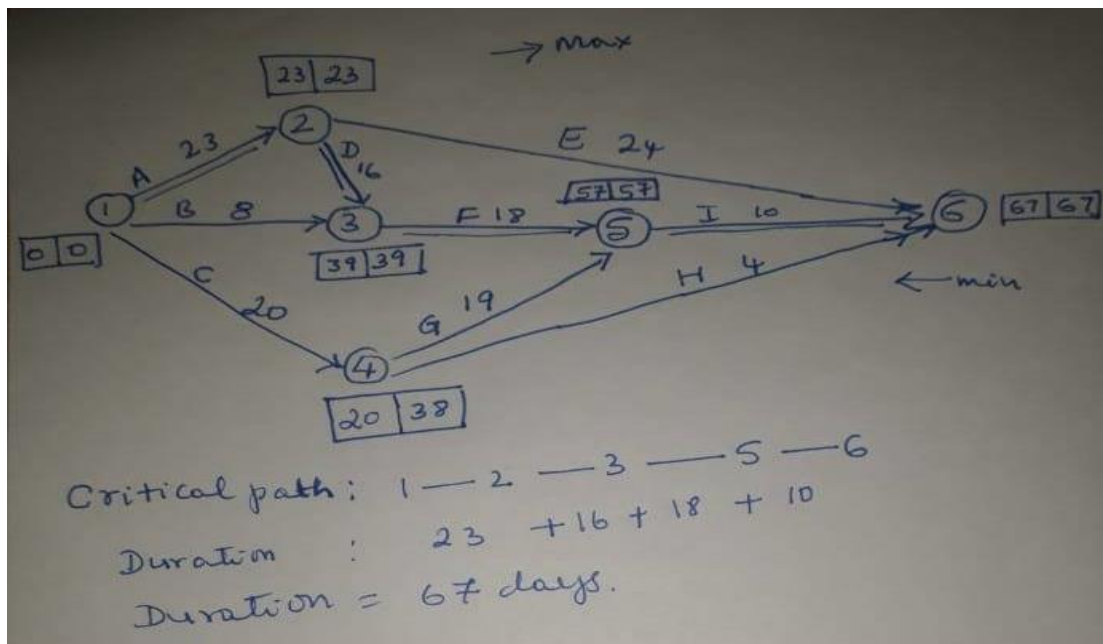 → max
23 23
2
A 23
D 16
E 24
57 57
1
B 8
3
F 18
5
I 10
6
67 67
0 0
39 39
C 20
G 19
H 4
← min
4
20 38
Critical path : 1 — 2 — 3 — 5 — 6
Duration : 23 + 16 + 18 + 10
Duration = 67 days.